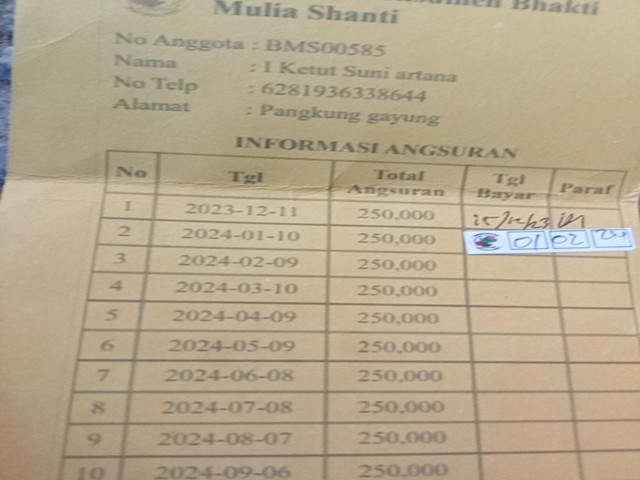 Bhakti
Mulia Shanti
No Anggota : BMS00585
Nama : I Ketut Suni artana
No Telp : 6281936338644
Alamat : Pangkung gayung
INFORMASI ANGSURAN
No Tgl Total Angsuran Tgl Bayar Paraf
1 2023-12-11 250,000
2 2024-01-10 250,000 01 02 24
3 2024-02-09 250,000
4 2024-03-10 250,000
5 2024-04-09 250,000
6 2024-05-09 250,000
7 2024-06-08 250,000
8 2024-07-08 250,000
9 2024-08-07 250,000
10 2024-09-06 250,000